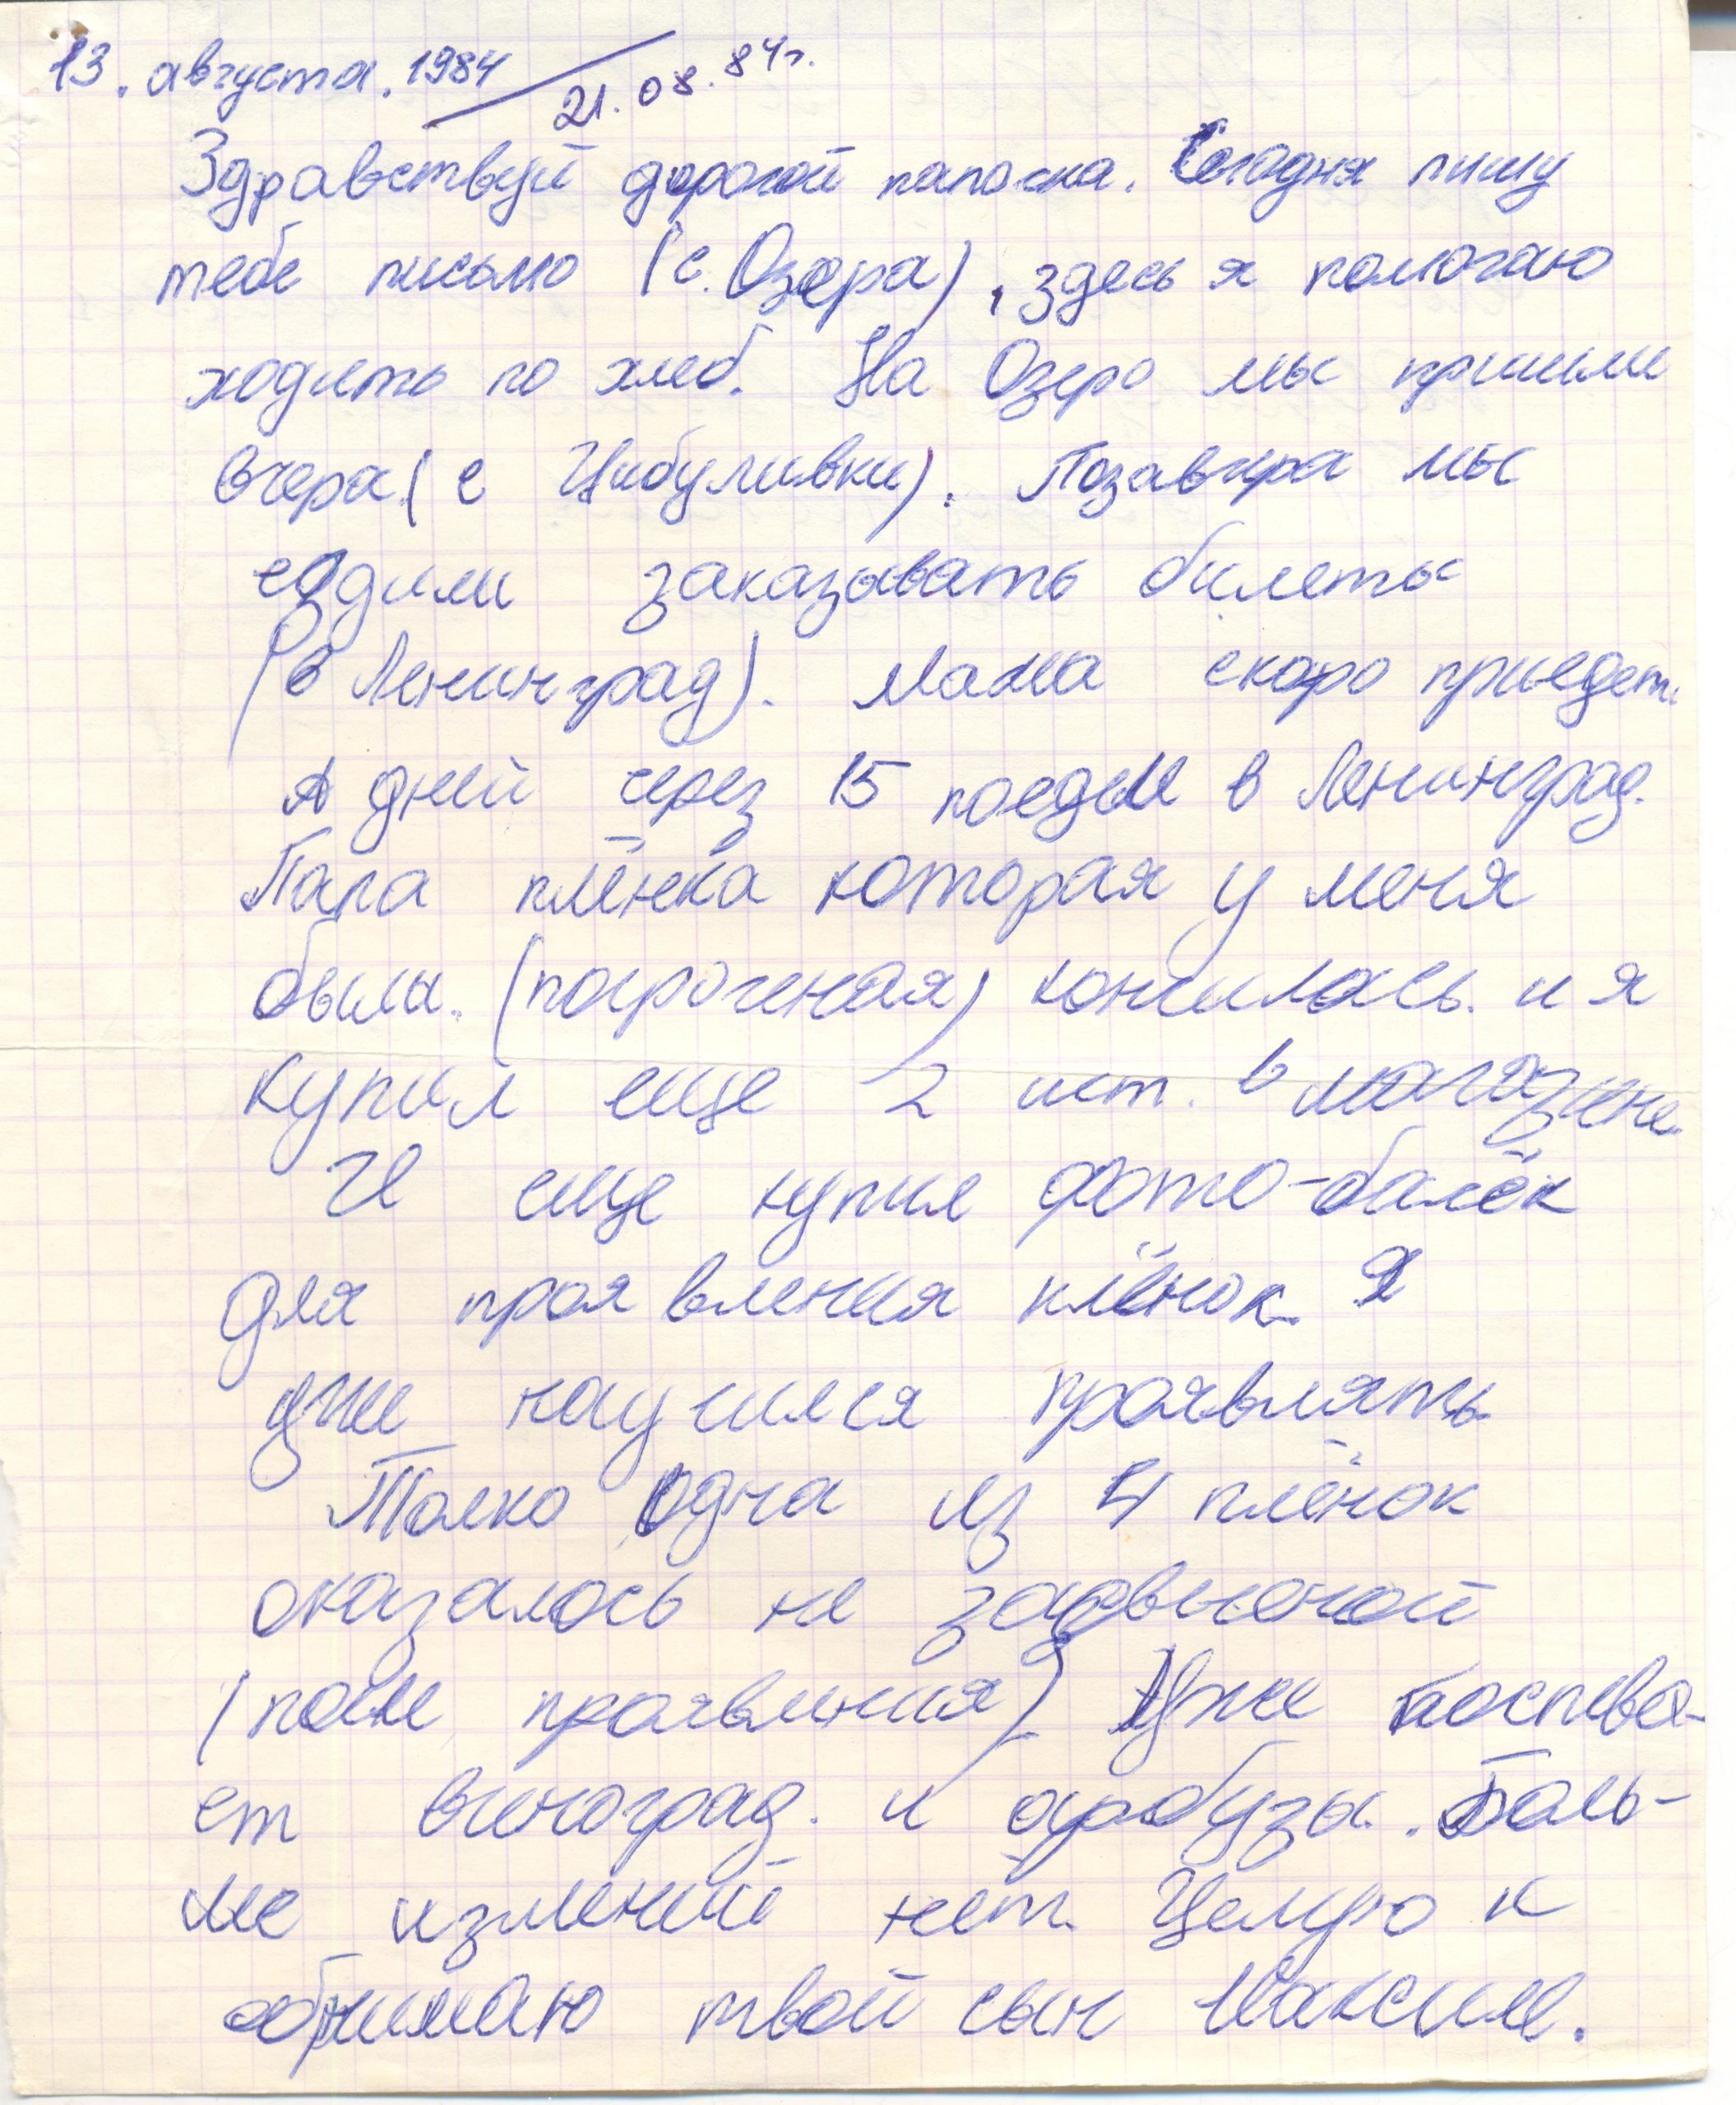 13. августа. 1984 / 21. 08. 84г.
Здравствуй дорогой папочка. Сегодня пишу
тебе письмо (с. Озера), здесь я помогаю
ходить по хлеб. На Озеро мы пришли
вчера (с Цибуливки). Позавчера мы
ездили заказывать билеты
(в Ленинград). Мама скоро приедет.
А дней через 15 поедем в Ленинград.
Папа плёнка которая у меня
была. (посроченая) кончилась. и я
купил еще 2 шт. в магазине
И еще купил фото-бачёк
для проявления плёнок. Я
уже научился проявлять
Толко одна из 4 плёнок
оказалось не
(после проявления) Уже поспева-
ет виноград. и арбузы. Боль-
ше измений нет. Целую и
обнимаю твой сын Максим.